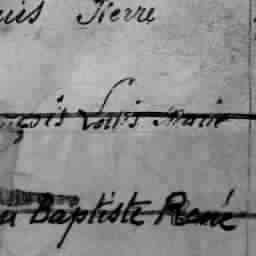 uis Pierre
nçois Louis Marie
n Baptiste René